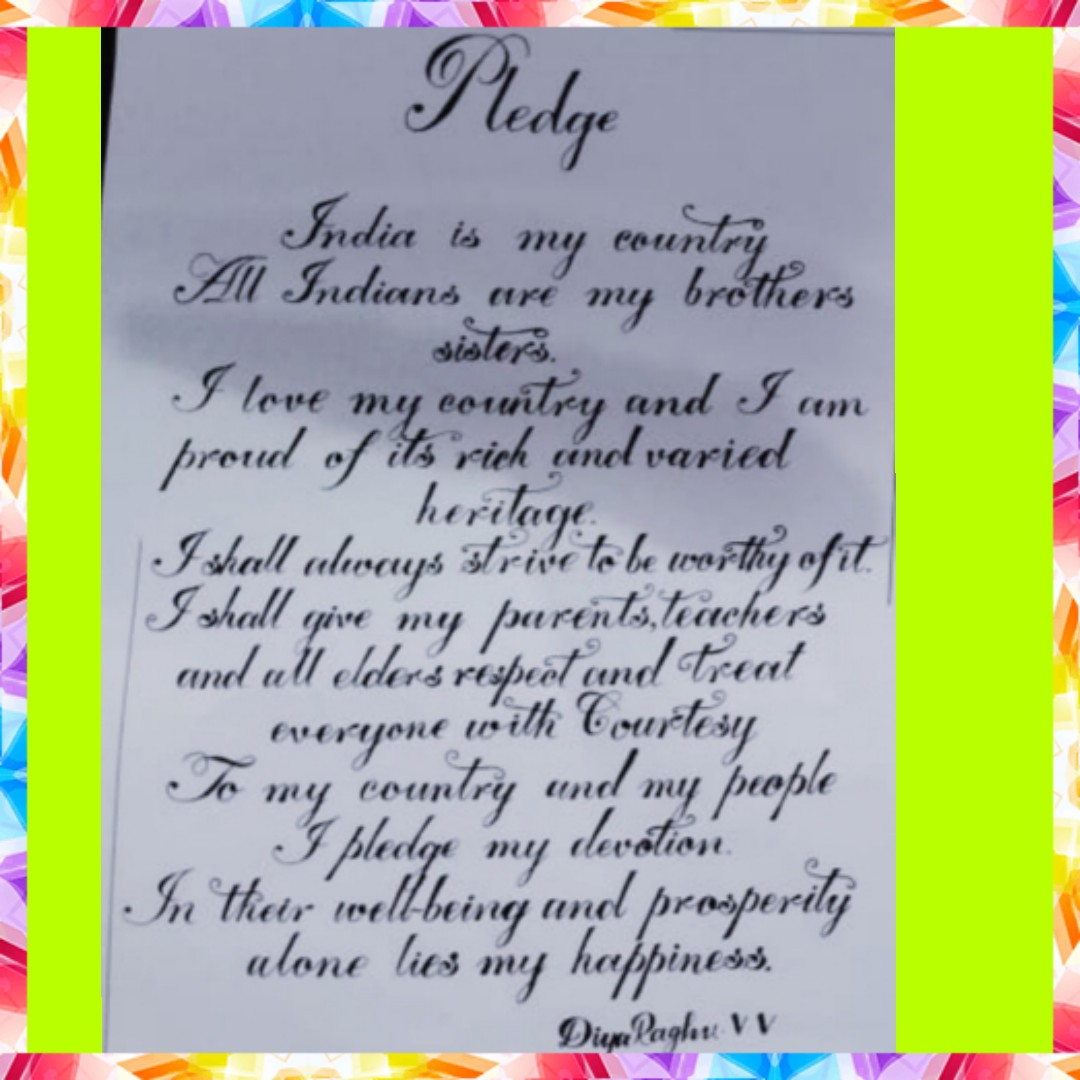 Pledge
India is my country
All Indians are my brothers
sisters.
I love my country and I am
proud of its rich and varied
heritage.
I shall always strive to be worthy of it.
I shall give my parents, teachers
and all elders respect and treat
everyone with Courtesy
To my country and my people
I pledge my devotion.
In their well-being and prosperity
alone lies my happiness.
Diya Raghu. V V